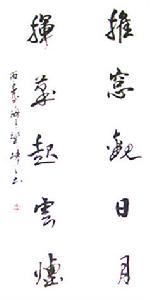 推窗觀日月
揮筆起雲煙